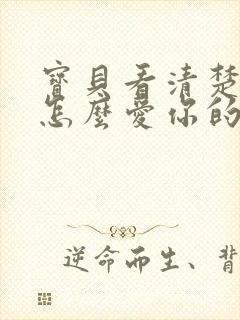 寶貝看清楚
怎麼愛你的
逆命而生、背